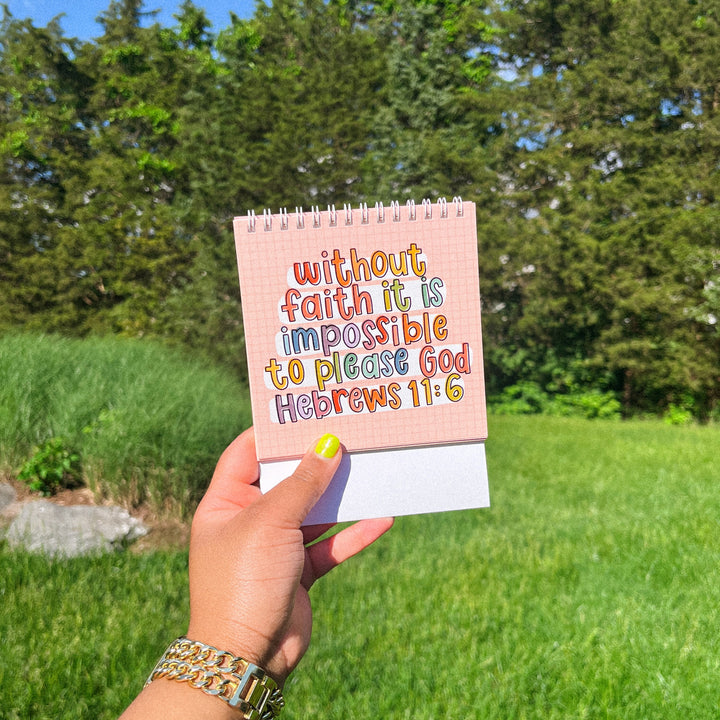 without
faith it is
impossible
to please God
Hebrews 11:6